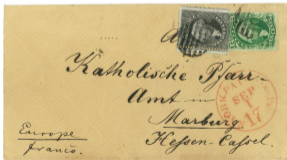 Katholische Pfarr-
Amt in
Marburg
Hessen-Cassel.
Europe
franco.
SEP
17